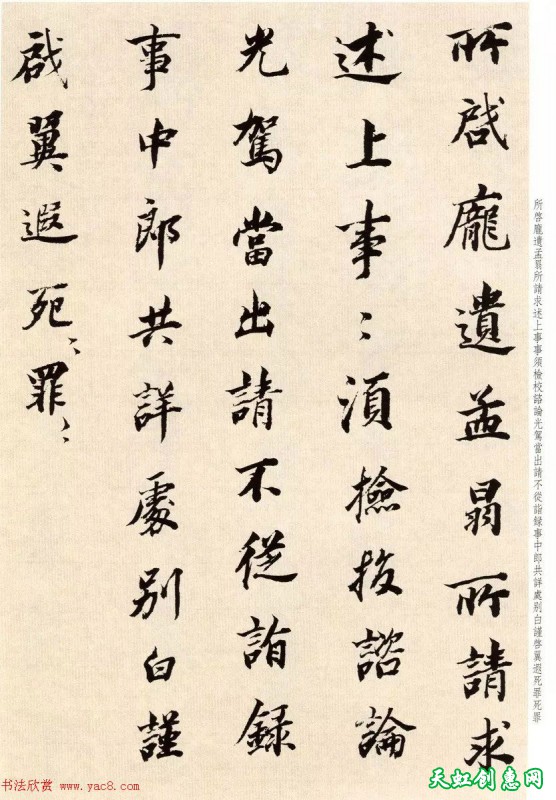 所啟龐遺孟昜所請求
述上事〻須撿挍諮論
光駕當出請不從詣録
事中郎共詳處別白謹
啟翼遐死〻罪〻
所啓龐遺孟昜所請求述上事事須檢校諮論光駕當出請不從詣録事中郎共詳處別白謹啓翼遐死罪死罪
书法欣赏 www.yac8.com
天虹创惠网